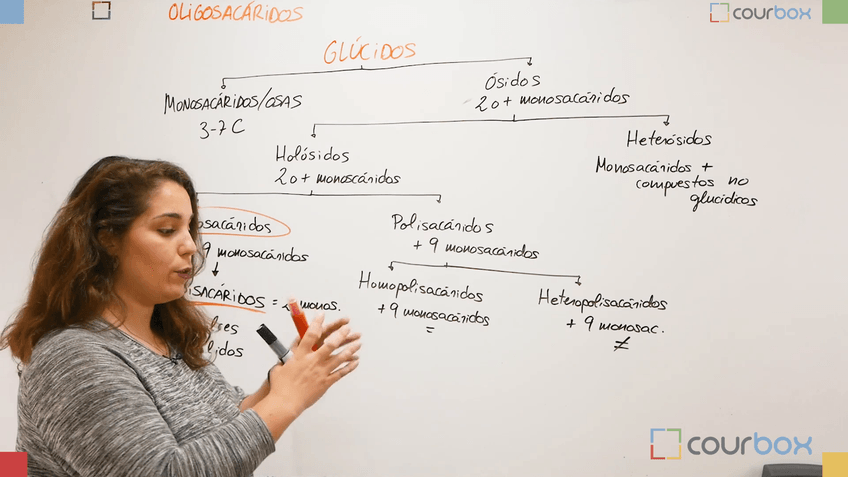 OLIGOSACÁRIDOS
courbox
GLÚCIDOS
MONOSACÁRIDOS/OSAS
3-7 C
Ósidos
2 o + monosacáridos
Holósidos
2 o + monoscáridos
Heterósidos
Monosacáridos +
compuestos no
glucidicos
osacáridos
9 monosacáridos
ISACÁRIDOS = 2 monos.
lidos
Polisacáridos
+ 9 monosacáridos
Homopolisacáridos
+ 9 monosacáridos
=
Heteropolisacáridos
+ 9 monosac.
≠
courbox